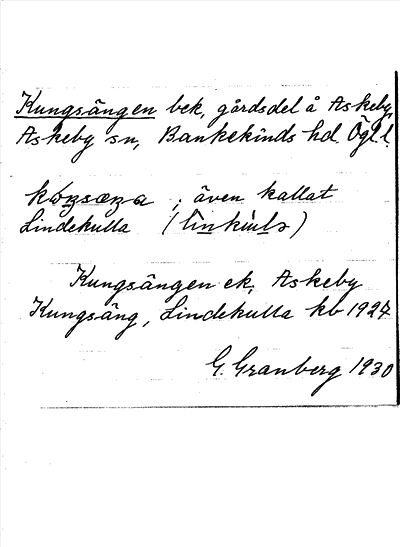 Kungsängen bek, gårdsdel å Askeby,
Askeby sn, Bankekinds hd. Ögl.
; även kallat
Lindekulla
Kungsängen ek, Askeby
Kungsäng, Lindekulla kb 1927
G. Granberg 1930